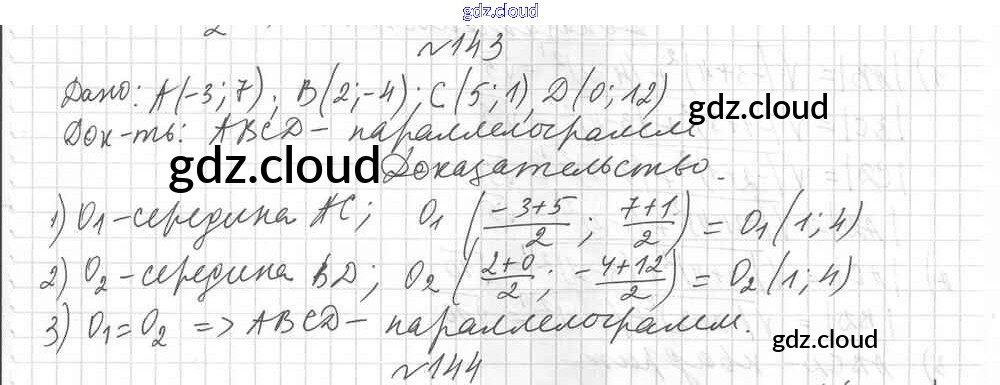 gdz.cloud
№143
Дано: A(-3; 7); B(2; -4); C(5; 1), D(0; 12)
gdz.cloud
Док-ть: ABCD - параллелограмм
gdz.cloud
Доказательство.
1) O₁ - середина AC; O₁ (-3+5/2 ; 7+1/2) = O₁(1; 4)
2) O₂ - середина BD; O₂ (2+0/2 ; -4+12/2) = O₂(1; 4)
3) O₁ = O₂ => ABCD - параллелограмм.
gdz.cloud
№144